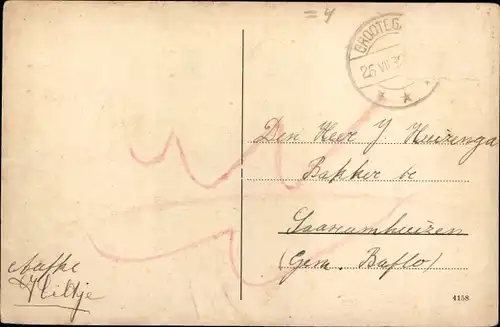 = 4
GROOTEG
26 VII 3
Den Heer J Huizenga
Bakker te
Saaxumhuizen
(Gem. Baflo)
Aafke
Hiltje
4158